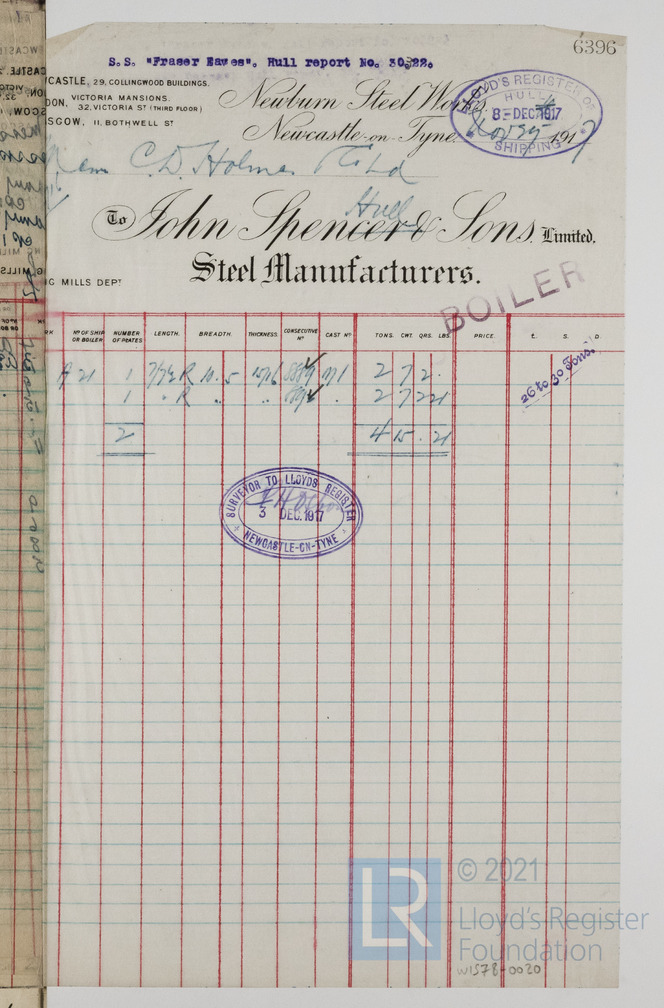 6396
S.S. "Fraser Eaves". Hull report No.
CASTLE, 29, COLLINGWOOD BUILDINGS.
DON, VICTORIA MANSIONS,
32, VICTORIA ST (THIRD FLOOR)
SGOW, 11, BOTHWELL ST
Newburn Steel Works.
Newcastle-on-Tyne. 1917
LLOYD'S REGISTER OF
HULL
8-DEC.1917
SHIPPING
C. D. Holmes & Co Ld
Hull
To John Spencer & Sons, Limited.
Steel Manufacturers.
G MILLS DEPT
BOILER
No OF SHIP OR BOILER. NUMBER OF PLATES LENGTH. BREADTH. THICKNESS. CONSECUTIVE No CAST No TONS. CWT. QRS. LBS. PRICE. £. S. D.
21 1 R 10. 5 2 7 2
1 " R " " 2 7 2 21
2 4 15 . 21
26 to 30 Tons.
SURVEYOR TO LLOYDS REGISTER
3 DEC. 1917
NEWCASTLE-ON-TYNE
LR
© 2021
Lloyd's Register
Foundation
W1578-0020